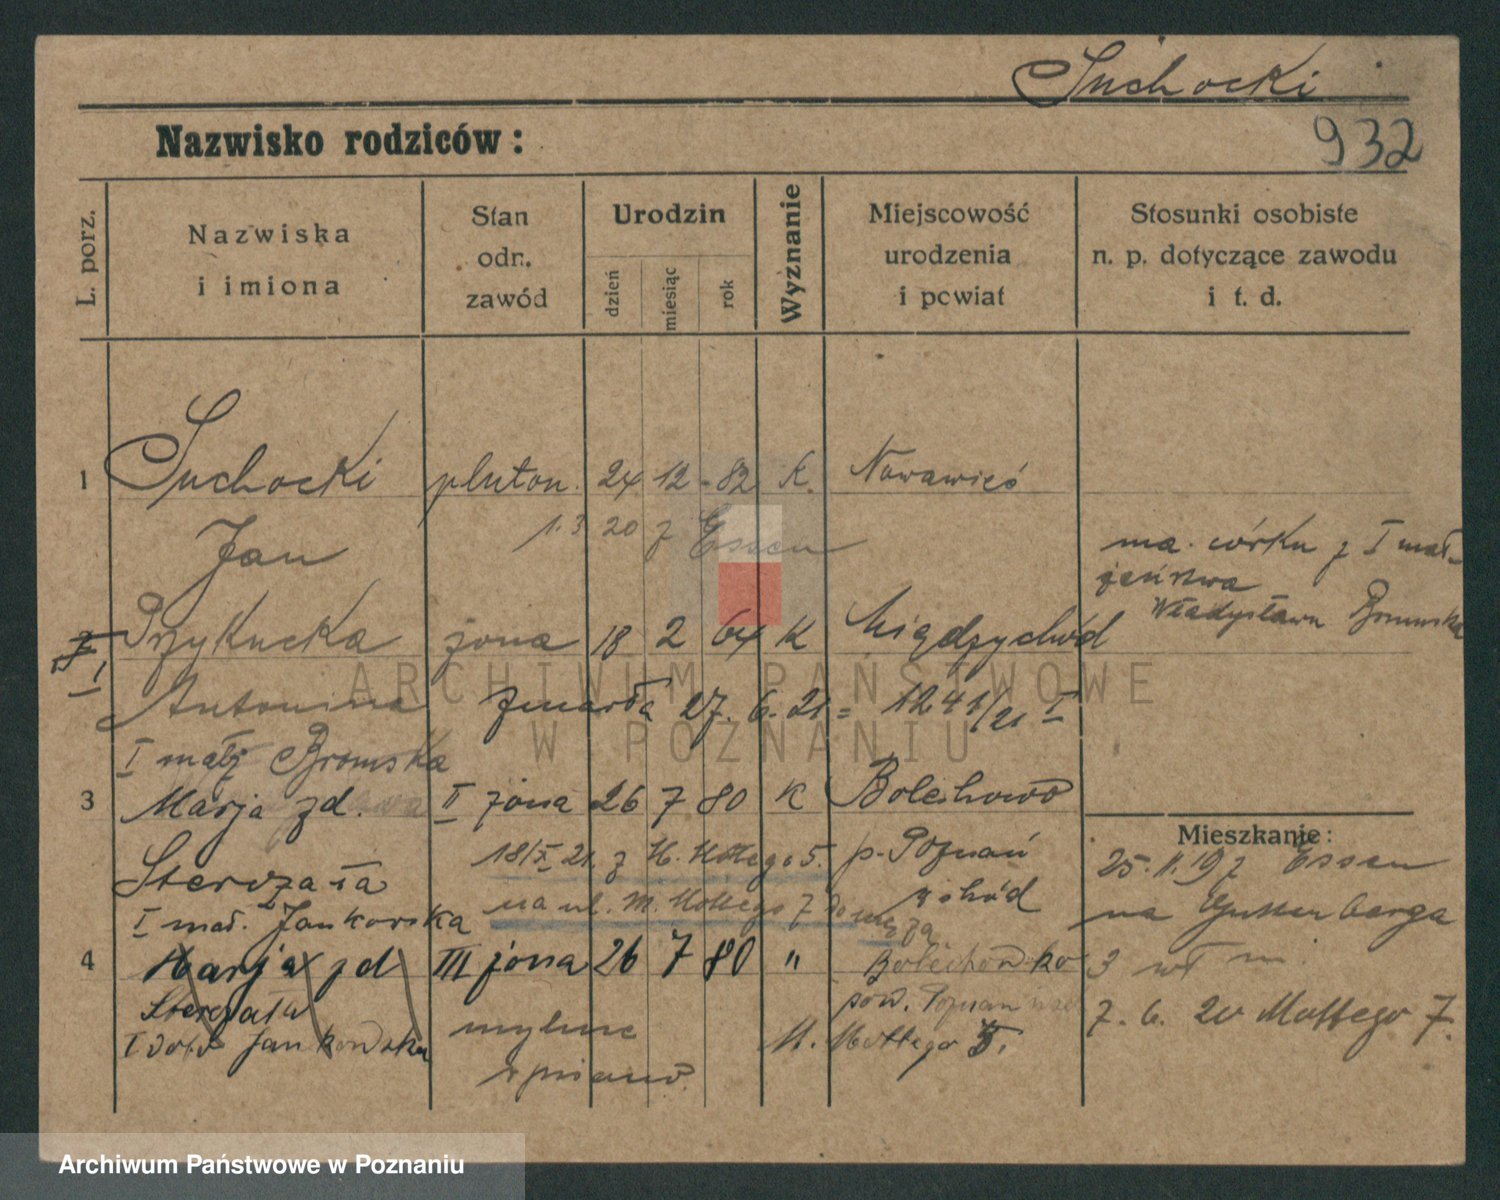 Suchocki
932
Nazwisko rodziców:
L. porz.
Nazwiska
i imiona
Stan
odn.
zawód
Urodzin
dzień
miesiąc
rok
Wyznanie
Miejscowość
urodzenia
i powiat
Stosunki osobiste
n. p. dotyczące zawodu
i t. d.
1 Suchocki pluton. 24 12 - 82 k. Nowawieś
1. 3 20 z Essen
Jan
ma córkę z I mał-
żeństwa
Władysława Bromska
2 Przykucka żona 18 2 64 K Międzychód
I
Antonina zmarła 27. 6. 21 = 1241/21 I
I małż Bromska
3 Marja zd. II żona 26 7 80 K Bolechowo
Mieszkanie:
18/X 21. z M. Mottego 5. p. Poznań
25. 11. 19 z Essen
Sterczała
na ul. M. Mottego 7 do męża
wschód
na Gutenberga
I mał. Jankowska
4 Marja zd III żona 26 7 80 " Bolechowko
3 wł m.
Sterczała
pow. Poznań
mylnie
7. 6. 20 Mottego 7.
I voto Jankowska
M. Mottego 5.
wpisano
ARCHIWUM PAŃSTWOWE
W POZNANIU
Archiwum Państwowe w Poznaniu